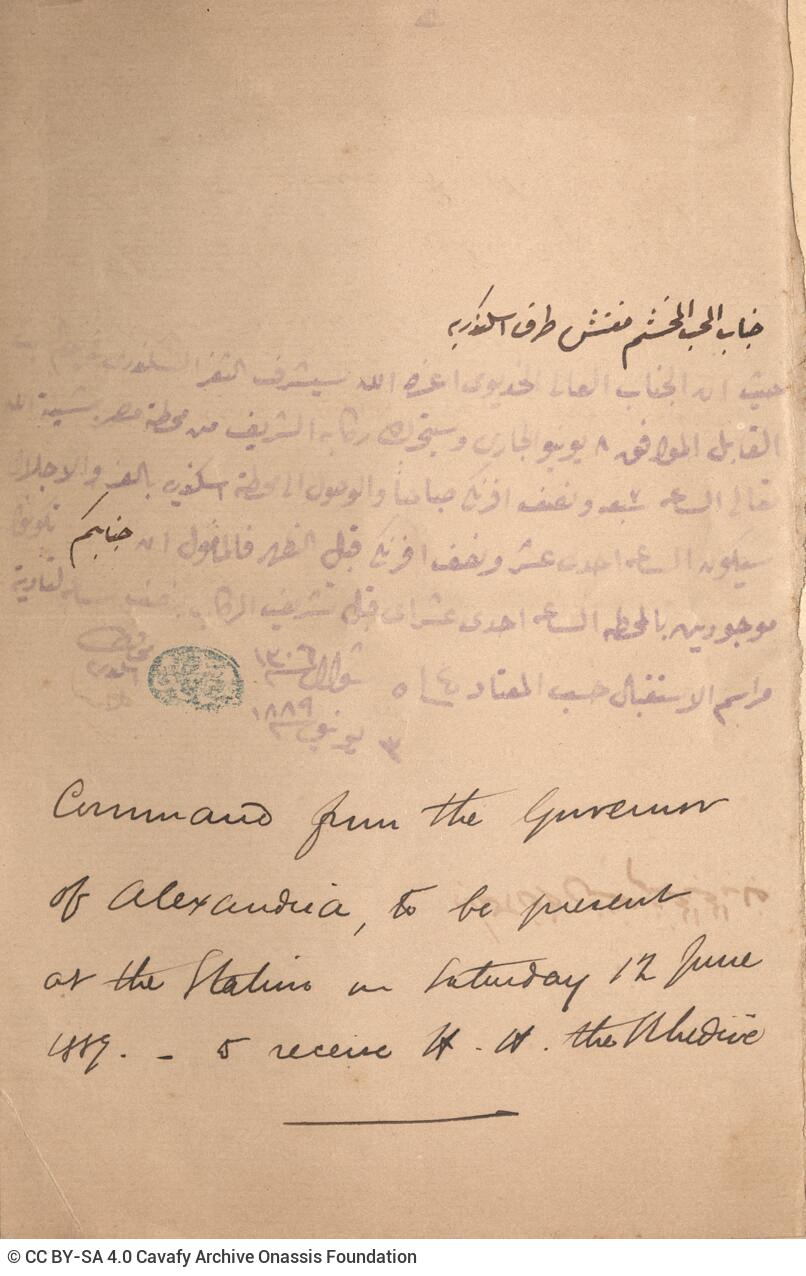 جناب المحب المحتشم مفتش طرف اسكندريه
حيث ان الجناب العالى الخديوى اعزه الله سيشرف الثغر السكندرى
القابل الموافق ٨ يونيو الجارى وسيتحرك ركابه الشريف من محطة مصر بمشيئة الله
تعالى الساعه ٧ سبعه ونصف افرنكى صباحاً والوصول الى محطة اسكندريه بالعز والاجلال
سيكون الساعه احدى عشر ونصف افرنكى قبل الظهر فالمأمول ان جنابكم تكونوا
موجودين بالمحطه الساعه احدى عشر اى قبل تشريف الركاب بنصف ساعه لتأدية
مراسم الاستقبال حسب المعتاد ٥ شوال ١٣٠٦
محافظ
٣ يونيو ١٨٨٩
Command from the Governor
of Alexandria, to be present
at the Station on Saturday 12 June
1889. – to receive H. H. the Khedive
© CC BY-SA 4.0 Cavafy Archive Onassis Foundation